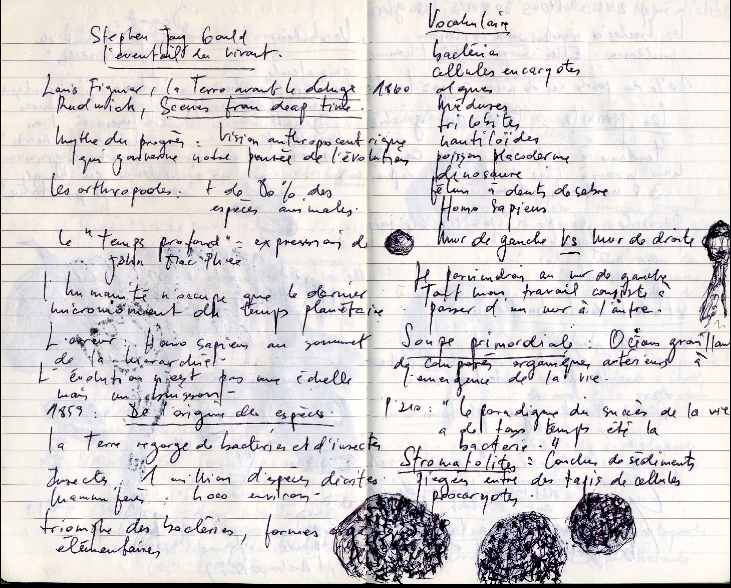 Stephen Jay Gould
l'éventail du vivant.
Louis Figuier, la Terre avant le déluge 1860
Rudwick, Scenes from deep time.
Mythe du progrès : vision anthropocentrique
qui gouverne notre pensée de l'évolution
Les arthropodes : + de 80 % des
espèces animales.
Le "temps profond" = expression de
John
l'humanité n'occupe que le dernier
micromoment du temps planétaire
L'erreur : Homo sapiens au sommet
de la hiérarchie.
L'évolution n'est pas une échelle
mais un buisson.
1859 : De l'origine des espèces.
la Terre regorge de bactéries et d'insectes
Insectes : 1 million d'espèces décrites
Mammifères : 4000 environ.
triomphe des bactéries, formes
élémentaires
Vocabulaire
bactéries
cellules eucaryotes
algues
méduses
trilobites
nautiloïdes
poisson placoderme
dinosaure
félins à dents de sabre
Homo Sapiens
Mur de gauche VS Mur de droite
Je parviendrai au mur de gauche
Tout mon travail consiste à
passer d'un mur à l'autre.
Soupe primordiale : Océans
de composés organiques antérieurs à
l'émergence de la vie.
P. 210 : "le paradigme du succès de la vie
a de tous temps été la
bactérie."
Stromatolites = Couches de sédiments
piégées entre des tapis de cellules
procaryotes